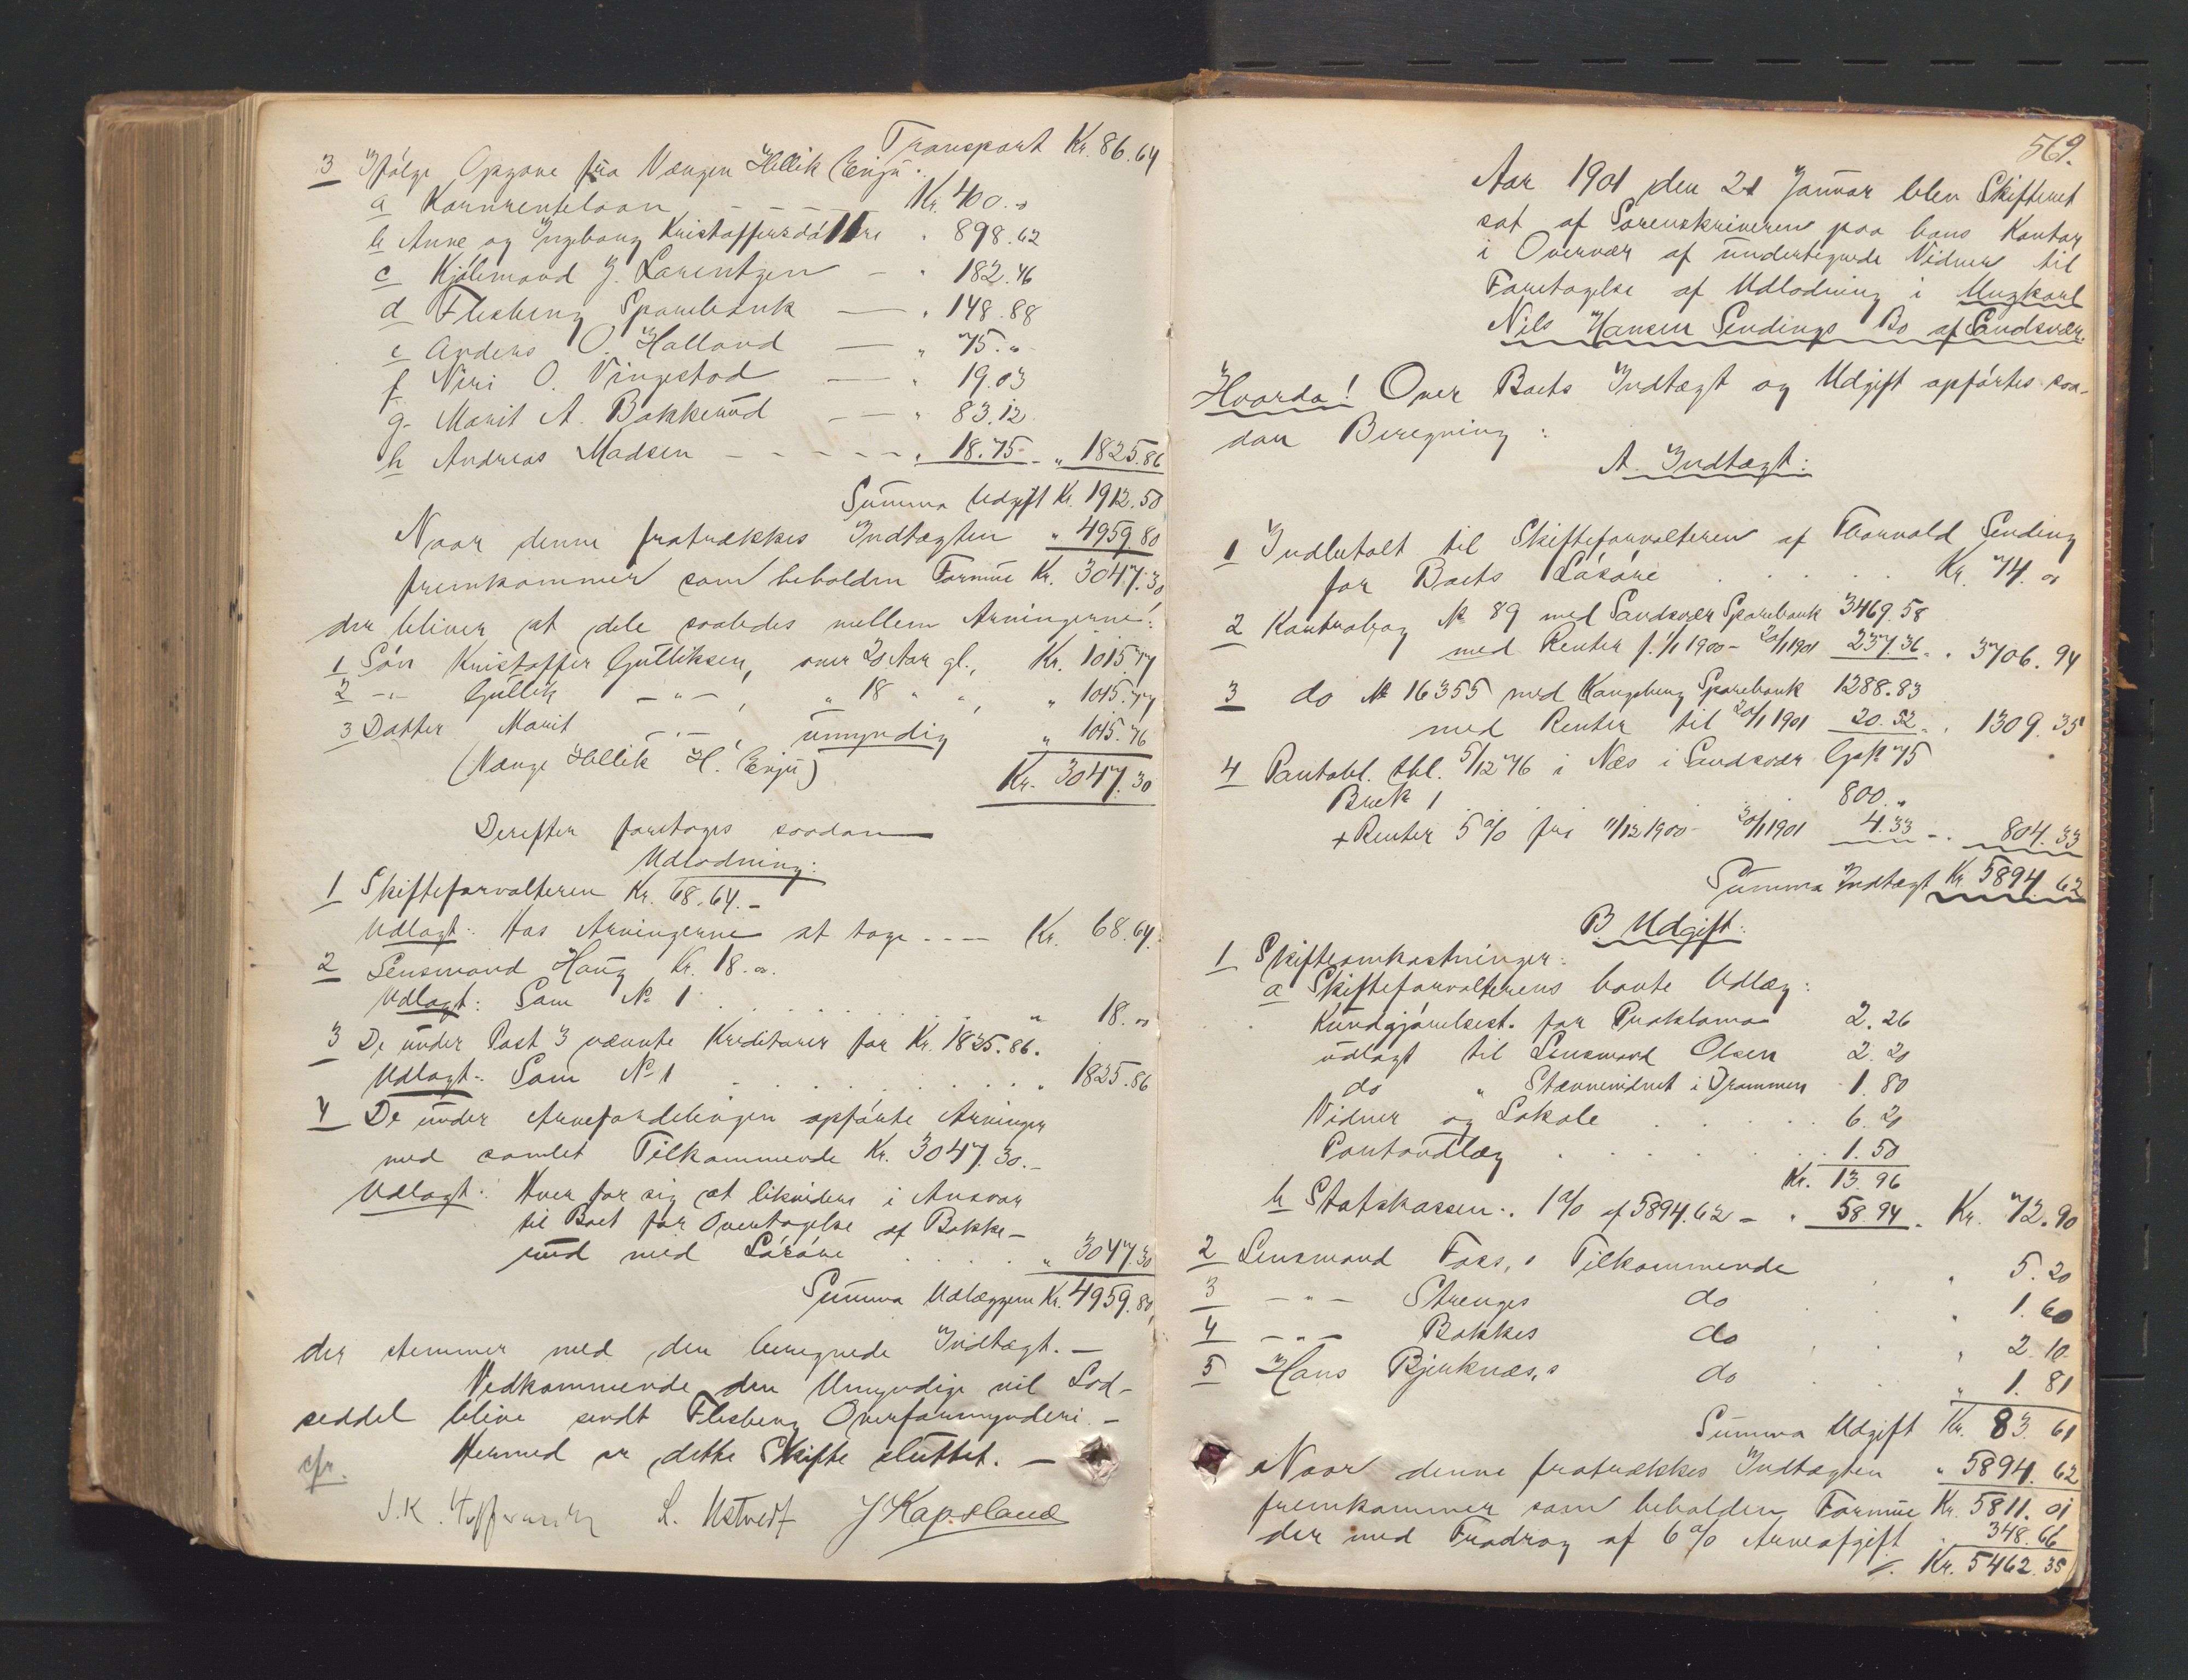 Transport Kr. 86.64
3 Ifølge Opgave fra Værgen Hellik Enju:
a Kornrentelaan - - - - Kr. 400. "
b Anne og Ingeborg Kristoffersdøttre " 898.62
c Kjøbmand J. Larentzen - " 182.46
d Flesberg Sparebank - " 148.88
e Anders O. Halland - " 75. "
f Niri O. Vingestad - " 19.03
g. Marit A. Bakkerud - " 83.12
h Andreas Madsen - - - - - " 18.75 - " 1825.86
Summa Udgift Kr. 1912.50
Naar denne fratrækkes Indtægten " 4959.80
fremkommer som beholden Formue Kr. 3047.30
der bliver at dele saaledes mellem Arvingerne:
1 Søn Kristoffer Gulliksen, over 20 Aar gl., Kr. 1015.77
2 -"- Gullik -"-, " 18 " ", " 1015.77
3 Datter Marit -"-, umyndig " 1015.76
(Værge Hellik H. Enju) Kr. 3047.30
Derefter foretoges saadan
Udlodning:
1 Skifteforvalteren Kr. 68.64. -
Udlagt: Hos Arvingerne at tage - - - Kr. 68.64.
2 Lensmand Haug Kr. 18. ".
Udlagt: Som No 1 . . . . . " 18. "
3 De under Post 3 nævnte Kreditorer for Kr. 1825.86.
Udlagt: Som No 1 . . . . . " 1825.86
4 De under Arvefordelingen opførte Arvinger
med samlet Tilkommende Kr. 3047.30. -
Udlagt: Hver for sig at likvidere i Ansvar
til Boet for Overtagelse af Bakke-
rud med Løsøre . . . " 3047.30
Summa Udlæggene Kr. 4959.80,
der stemmer med den beregnede Indtægt. -
Vedkommende den Umyndige vil Lod-
seddel blive sendt Flesberg Overformynderi. -
Hermed er dette Skifte sluttet. -
cfr.
L. Ustvedt J Kapsland
569.
Aar 1901 den 21 Januar blev Skifteret
sat af Sorenskriveren paa hans Kontor
i Overvær af undertegnede Vidner til
Foretagelse af Udlodning i Ungkarl
Nils Hansen Sendings Bo af Sandsvær.
Hvorda! Over Boets Indtægt og Udgift opførtes saa-
dan Beregning:
A. Indtægt:
1 Indbetalt til Skifteforvalteren af Thorvald Sending
for Boets Løsøre . . . . . Kr. 74. "
2 Kontrabog No 89 med Sandsvær Sparebank 3469.58
med Renter f. 1/1 1900 - 20/1 1901 237.36 " " 3706.94
3 do No 16355 med Kongsberg Sparebank 1288.83
med Renter til 20/1 1901 20.52 " " 1309.35
4 Pantobl. tbl. 5/12 76 i Næs i Sandsvær Gs No 75
Br No 1 800. "
+ Renter 5 % fra 11/12 1900 - 20/1 1901 4.33 - " 804.33
Summa Indtægt Kr. 5894.62
B Udgift:
1 Skifteomkostninger:
a Skifteforvalterens havte Udlæg:
Kundgjørelsest. for Proklama 2.26
udlagt til Lensmand Olsen 2.20
do " Stævnevidnet i Drammen 1.80
Vidner og Lokale . . . . . 6.20
Pantoudlæg . . . . . . 1.50
Kr. 13.96
b Statskassen: 1 % af 5894.62 - " 58.94 " Kr. 72.90
2 Lensmand Foss,s Tilkommende " 5.20
3 -"- Strenges do " 1.60
4 -"- Bakkes do " 2.10
5 Hans Bjerknæs,s do " 1.81
Summa Udgift Kr. 83.61
Naar denne fratrækkes Indtægten " 5894.62
fremkommer som beholden Formue Kr. 5811.01
der med Fradrag af 6 % Arveafgift " 348.66
Kr. 5462.35